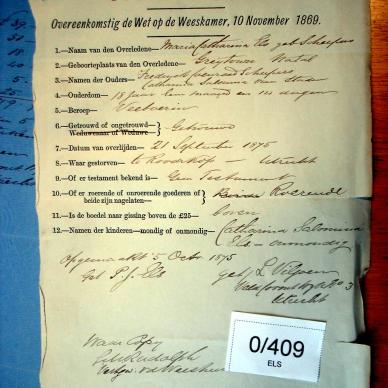 Overeenkomstig de Wet op de Weeskamer, 10 November 1869.
1.—Naam van den Overledene— Maria Catharina Els geb Scheepers
2.—Geboorteplaats van den Overledene— Greytown Natal
3.—Namen der Ouders— Scheepers
Catharina Salomina van Staden
4.—Ouderdom— 18 jaar een maand en 14 dagen
5.—Beroep— Veeboerin
6.—Getrouwd of ongetrouwd— } Getrouwd
Weduwenaar of Weduwe—
7.—Datum van overlijden— 21 September 1875
8.—Waar gestorven— te Rooikop — Utrecht
9.—Of er testament bekend is— Geen Testament
10.—Of er roerende of onroerende goederen of } Roerende
beide zijn nagelaten—
11.—Is de boedel naar gissing boven de £25— boven
12.—Namen der kinderen—mondig of onmondig— Catharina Salomina
Els — onmondig
Opgemaakt 5 Octr 1875
get P. J. Els
get L Viljoen
No 3
Utrecht
Ware Copy
0/409
ELS